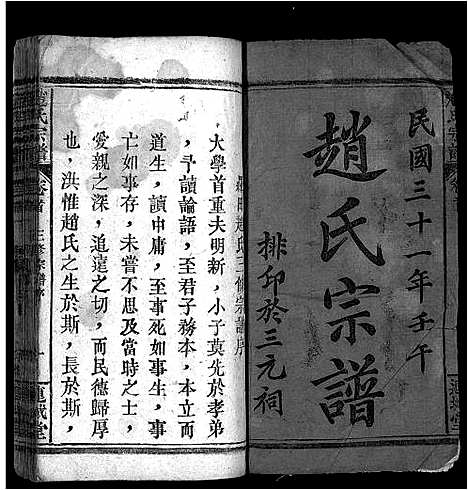 民國三十一年壬午
趙氏宗譜
排印於三元祠
趙氏三修宗譜序
大學首重夫明新，小子莫先於孝弟
，予讀論語，至君子務本，本立而
道生，讀中庸，至事死如事生，事
亡如事存，未嘗不思及當時之士，
愛親之深，追遠之切，而民德歸厚
也，洪惟趙氏之生於斯，長於斯，
趙氏宗譜
卷首
三修宗譜序
一